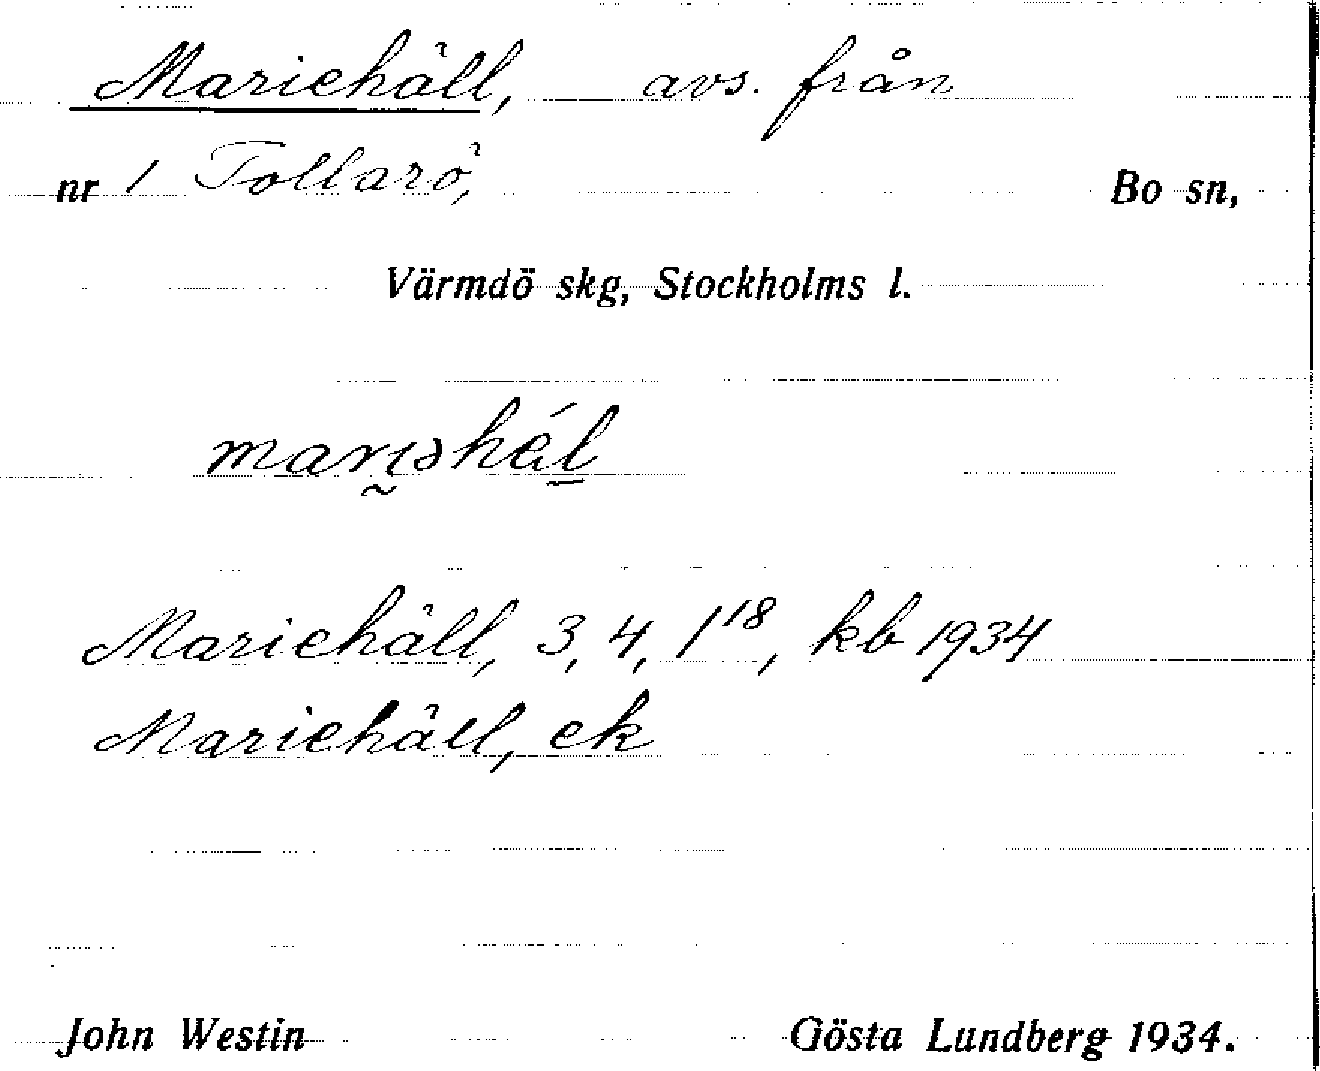 Mariehäll, avs. från
nr 1 Tollarö, Bo sn,
Värmdö skg, Stockholms l.
Mariehäll, 3, 4, 1¹⁸, kb 1934
Mariehäll, ek
John Westin Gösta Lundberg 1934.